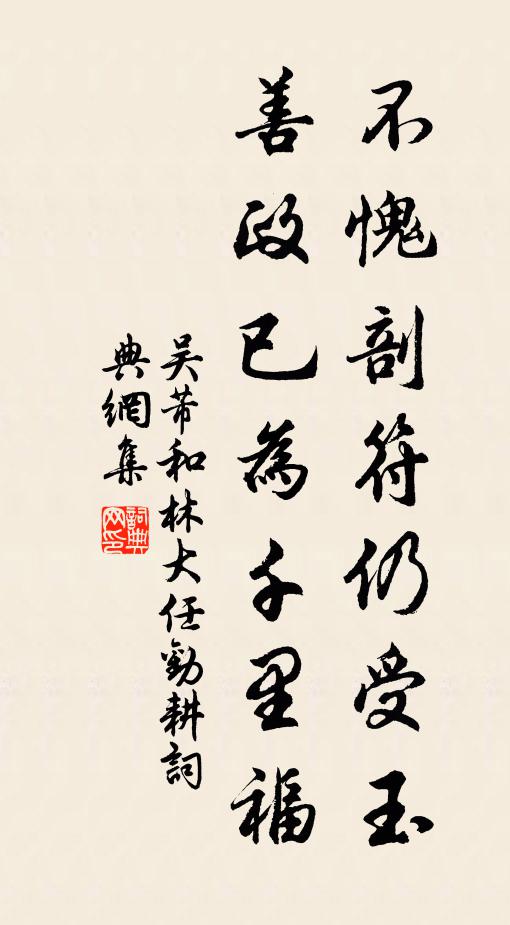 不愧剖符仍受玉
善政已為千里福
吳芾和林大任勸耕詞
典網集
詞典
网印